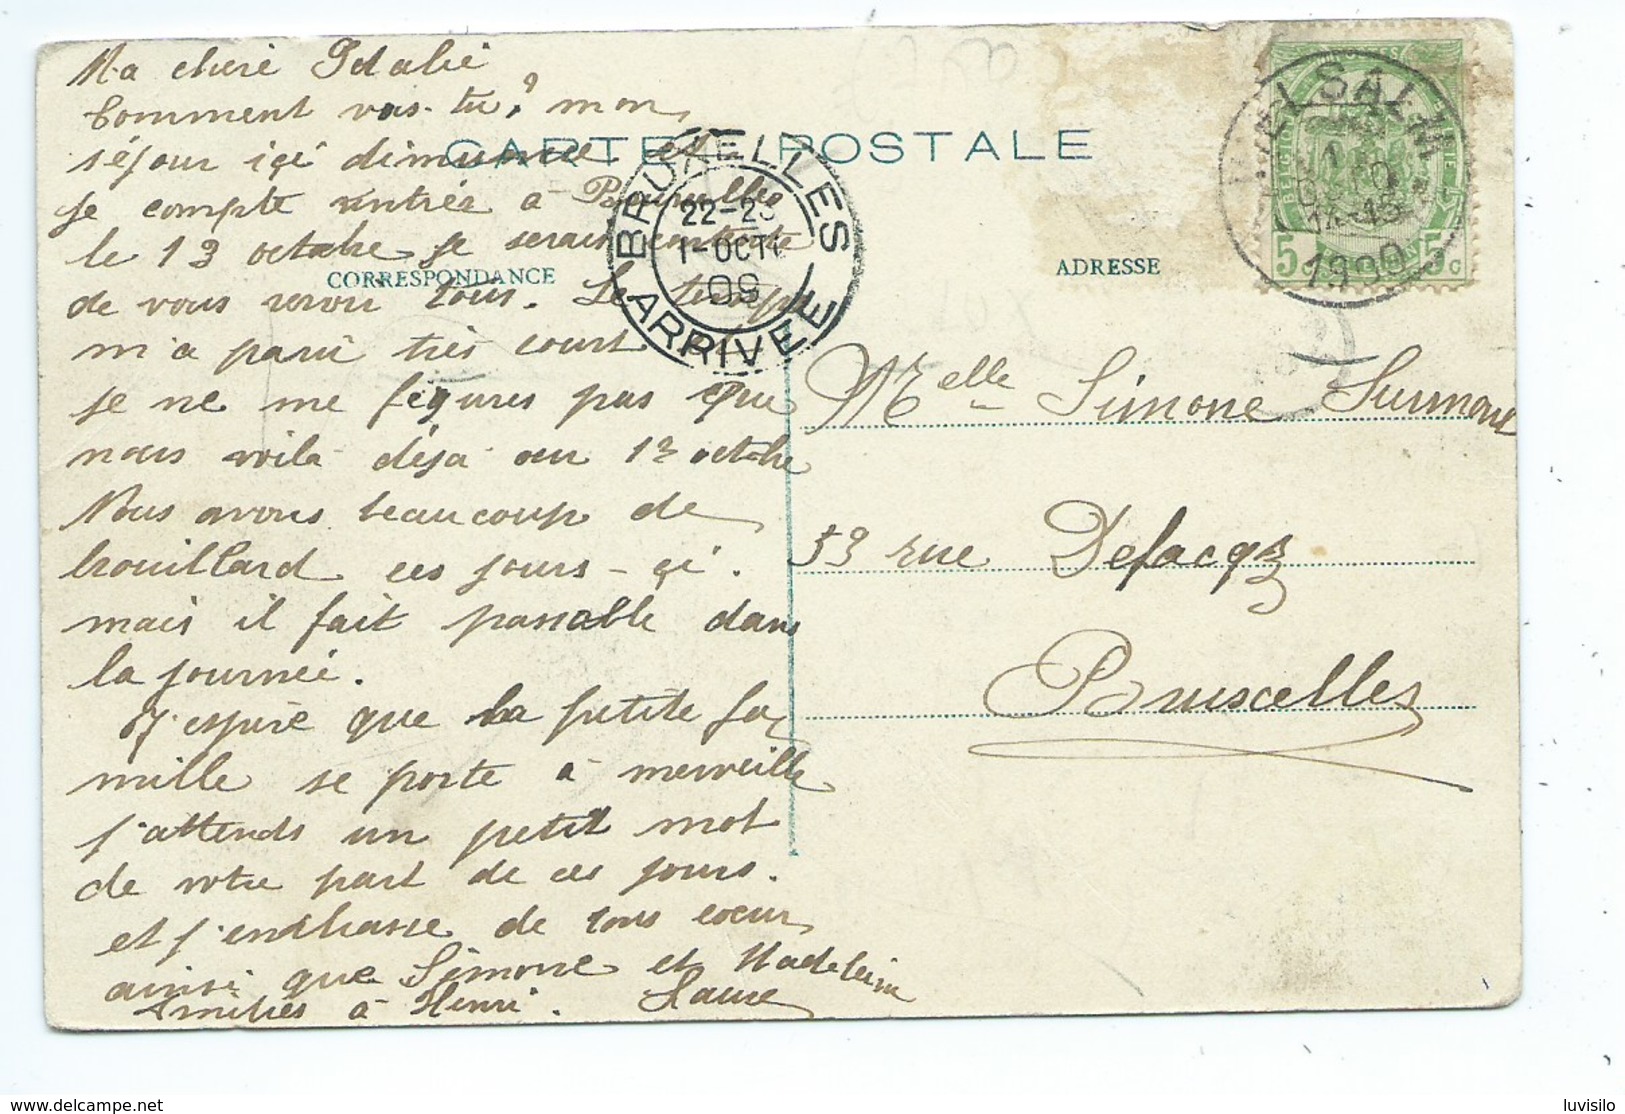 Ma chère Idalie
Comment vas-tu? mon
séjour içi diminue et
je compte rentrée à Bruxelles
le 13 octobre je serais contente
de vous revoir tous. Le temps
m'a paru très court
je ne me figures pas que
nous voila déja au 1r octobre
Nous avons beaucoup de
brouillard ces jours-çi.
mais il fait passable dans
la journée.
J'espère que la petite fa
mille se porte à merveille
j'attends un petit mot
de votre part de ces jours.
et j'embrasse de tous coeur
ainsi que Simone et Madeleine
Amitiés à Henri. Laure
CARTE POSTALE
CORRESPONDANCE
ADRESSE
BRUXELLES
22-23
1-OCTO
09
ARRIVEE
VIELSALM
1
14-15
1909
BELGIQUE
5c 5c
Melle Simone Surmont
53 rue Defacqz
Bruxelles
delcampe.net
luvisilo